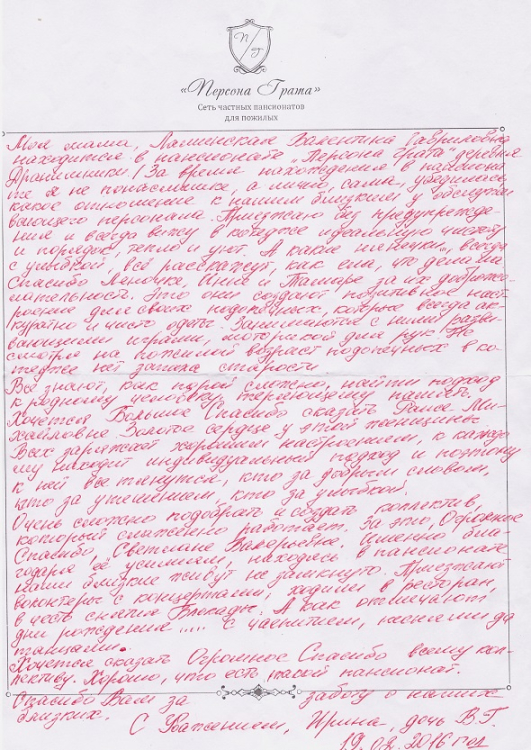 П Г
«Персона Грата»
Сеть частных пансионатов
для пожилых
Моя мама, Лашинская Валентина Гавриловна
находится в пансионате „Персона Грата" деревня
Дранишники. За время нахождения в пансиона
те я не понаслышке, а лично, сама, убедилась
какое отношение к нашим близким у обслужи
вающего персонала. Приезжаю без предупрежде-
ния и всегда вижу в коттедже идеальную чистоту
и порядок, тепло и уют. А какие нянечки, всегда
с улыбкой, всё расскажут, как ела, что делала
Спасибо Леночке, Инне и Тамаре за их доброже-
лательность. Это они создают позитивный наст
роение для своих подопечных, которые всегда ак
куратно и чисто одеты. Занимаются с ними разви
вающими играми, моторикой для рук. Не
смотря на пожилой возраст подопечных в ко
тедже нет запаха старости
Все знают, как порой сложно, найти подход
к родному человеку, теряющему память.
Хочется Большое Спасибо сказать Раисе Ми-
хайловне. Золотое сердце у этой женщины.
Всех заряжает хорошим настроением, к каждо
му находит индивидуальный подход и поэтому
к ней все тянутся, кто за добрым словом,
кто за утешением, кто за улыбкой.
Очень сложно подобрать и создать коллектив,
который слаженно работает. За это, Огромное
Спасибо, Светлане Валерьевне. Именно бла-
годаря её усилиям, находясь в пансионате
наши близкие живут не замкнуто. Приезжают
волонтёры с концертами, ходили в ресторан,
в честь снятия Блокады. А как отмечают
дни рождения ..... с чаепитием, песнями да
танцами.
Хочется сказать Огромное Спасибо всему кол-
лективу. Хорошо, что есть такой пансионат.
Спасибо Вам за заботу о наших
близких.
С Уважением, Ирина, дочь В.Г.
19.02.2016 год.